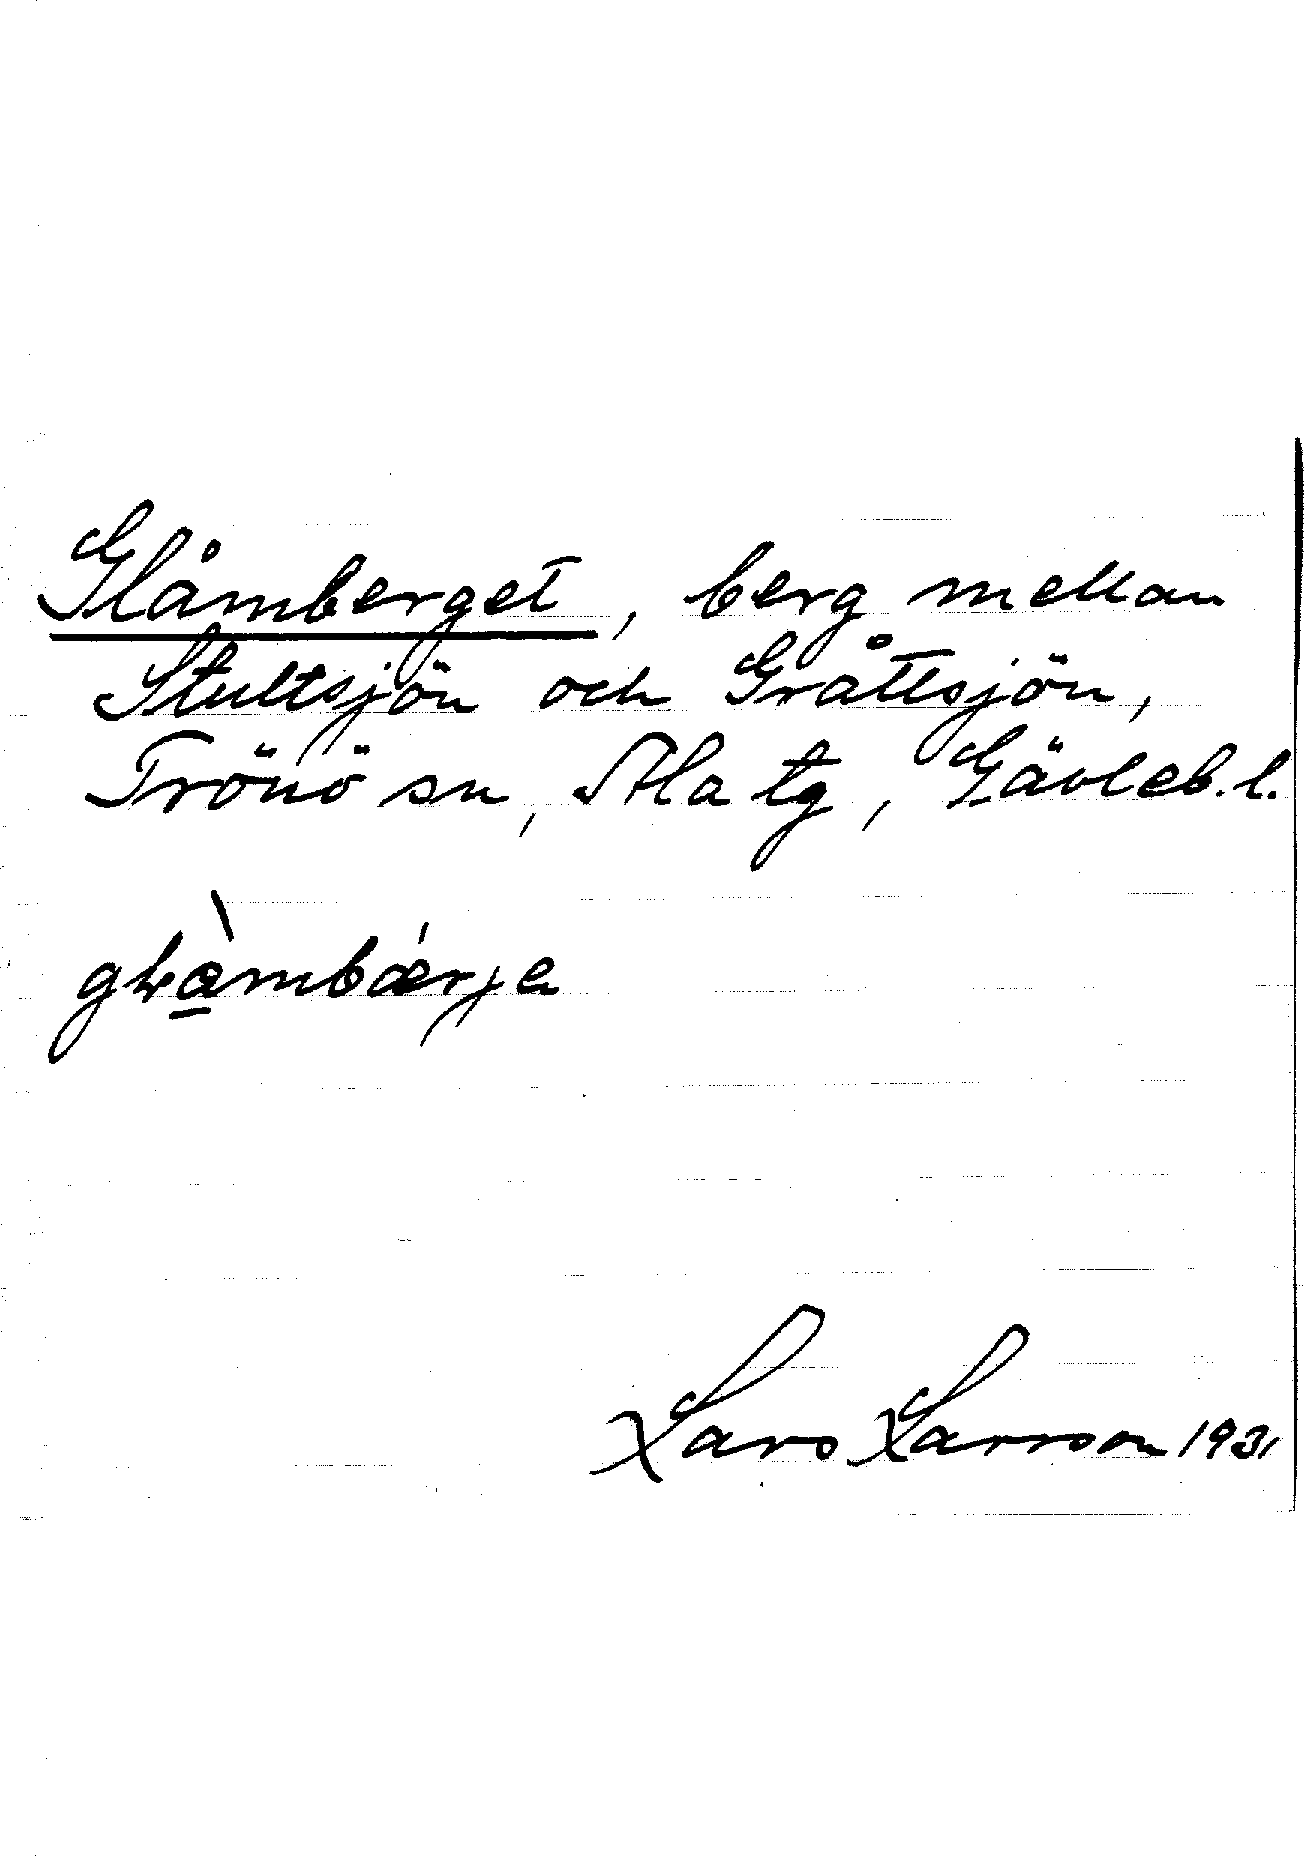 Glåmberget, berg mellan
Stultsjön och Gråttsjön,
Trönö sn, Ala tg, Gävleb. l.
Lars Larsson 1931